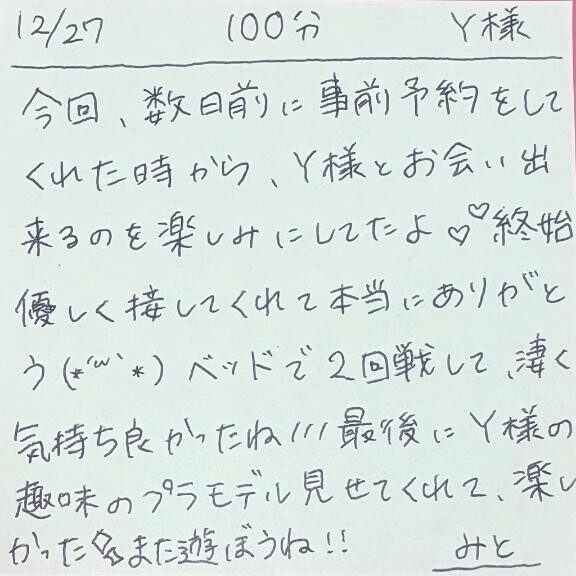 12/27 100分 Y様
今回、数日前に事前予約をして
くれた時から、Y様とお会い出
来るのを楽しみにしてたよ♡♡終始
優しく接してくれて本当にありがと
う(*´ω`*)ベッドで2回戦して、凄く
気持ち良かったね///最後にY様の
趣味のプラモデル見せてくれて、楽し
かった💫また遊ぼうね!!
みと